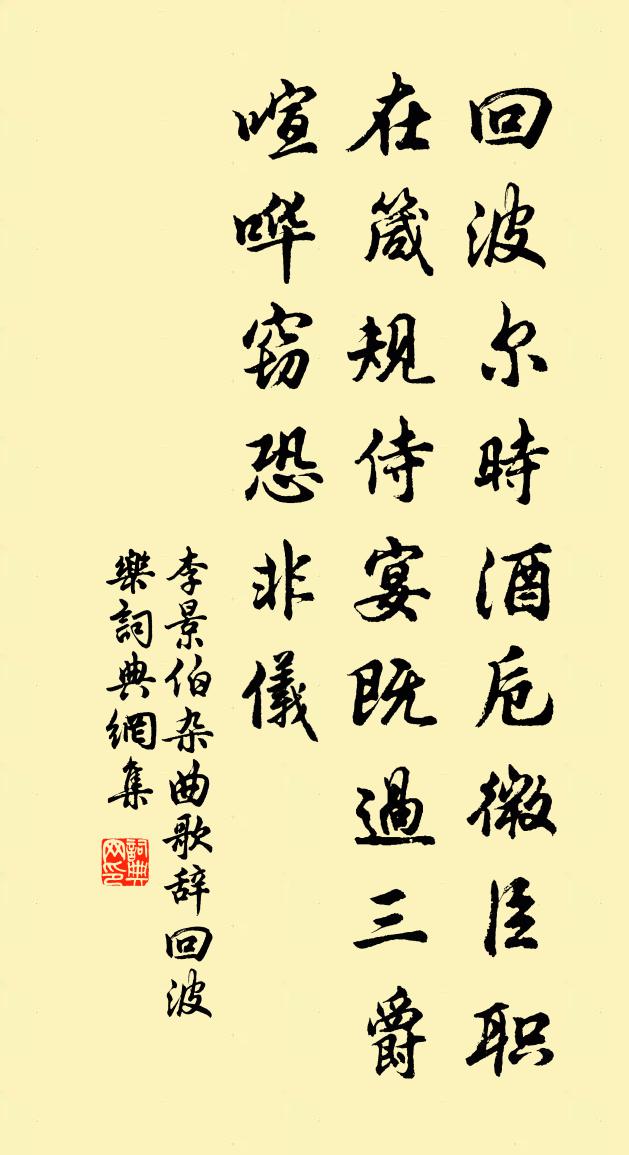 回波尔時酒卮微臣职
在箴规侍宴既過三爵
喧哗窃恐非儀
李景伯杂曲歌辞回波
樂詞典網集
詞典
网印